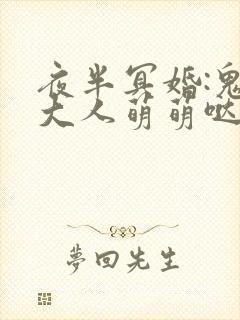 夜半冥婚:鬼
大人萌萌哒
夢回先生